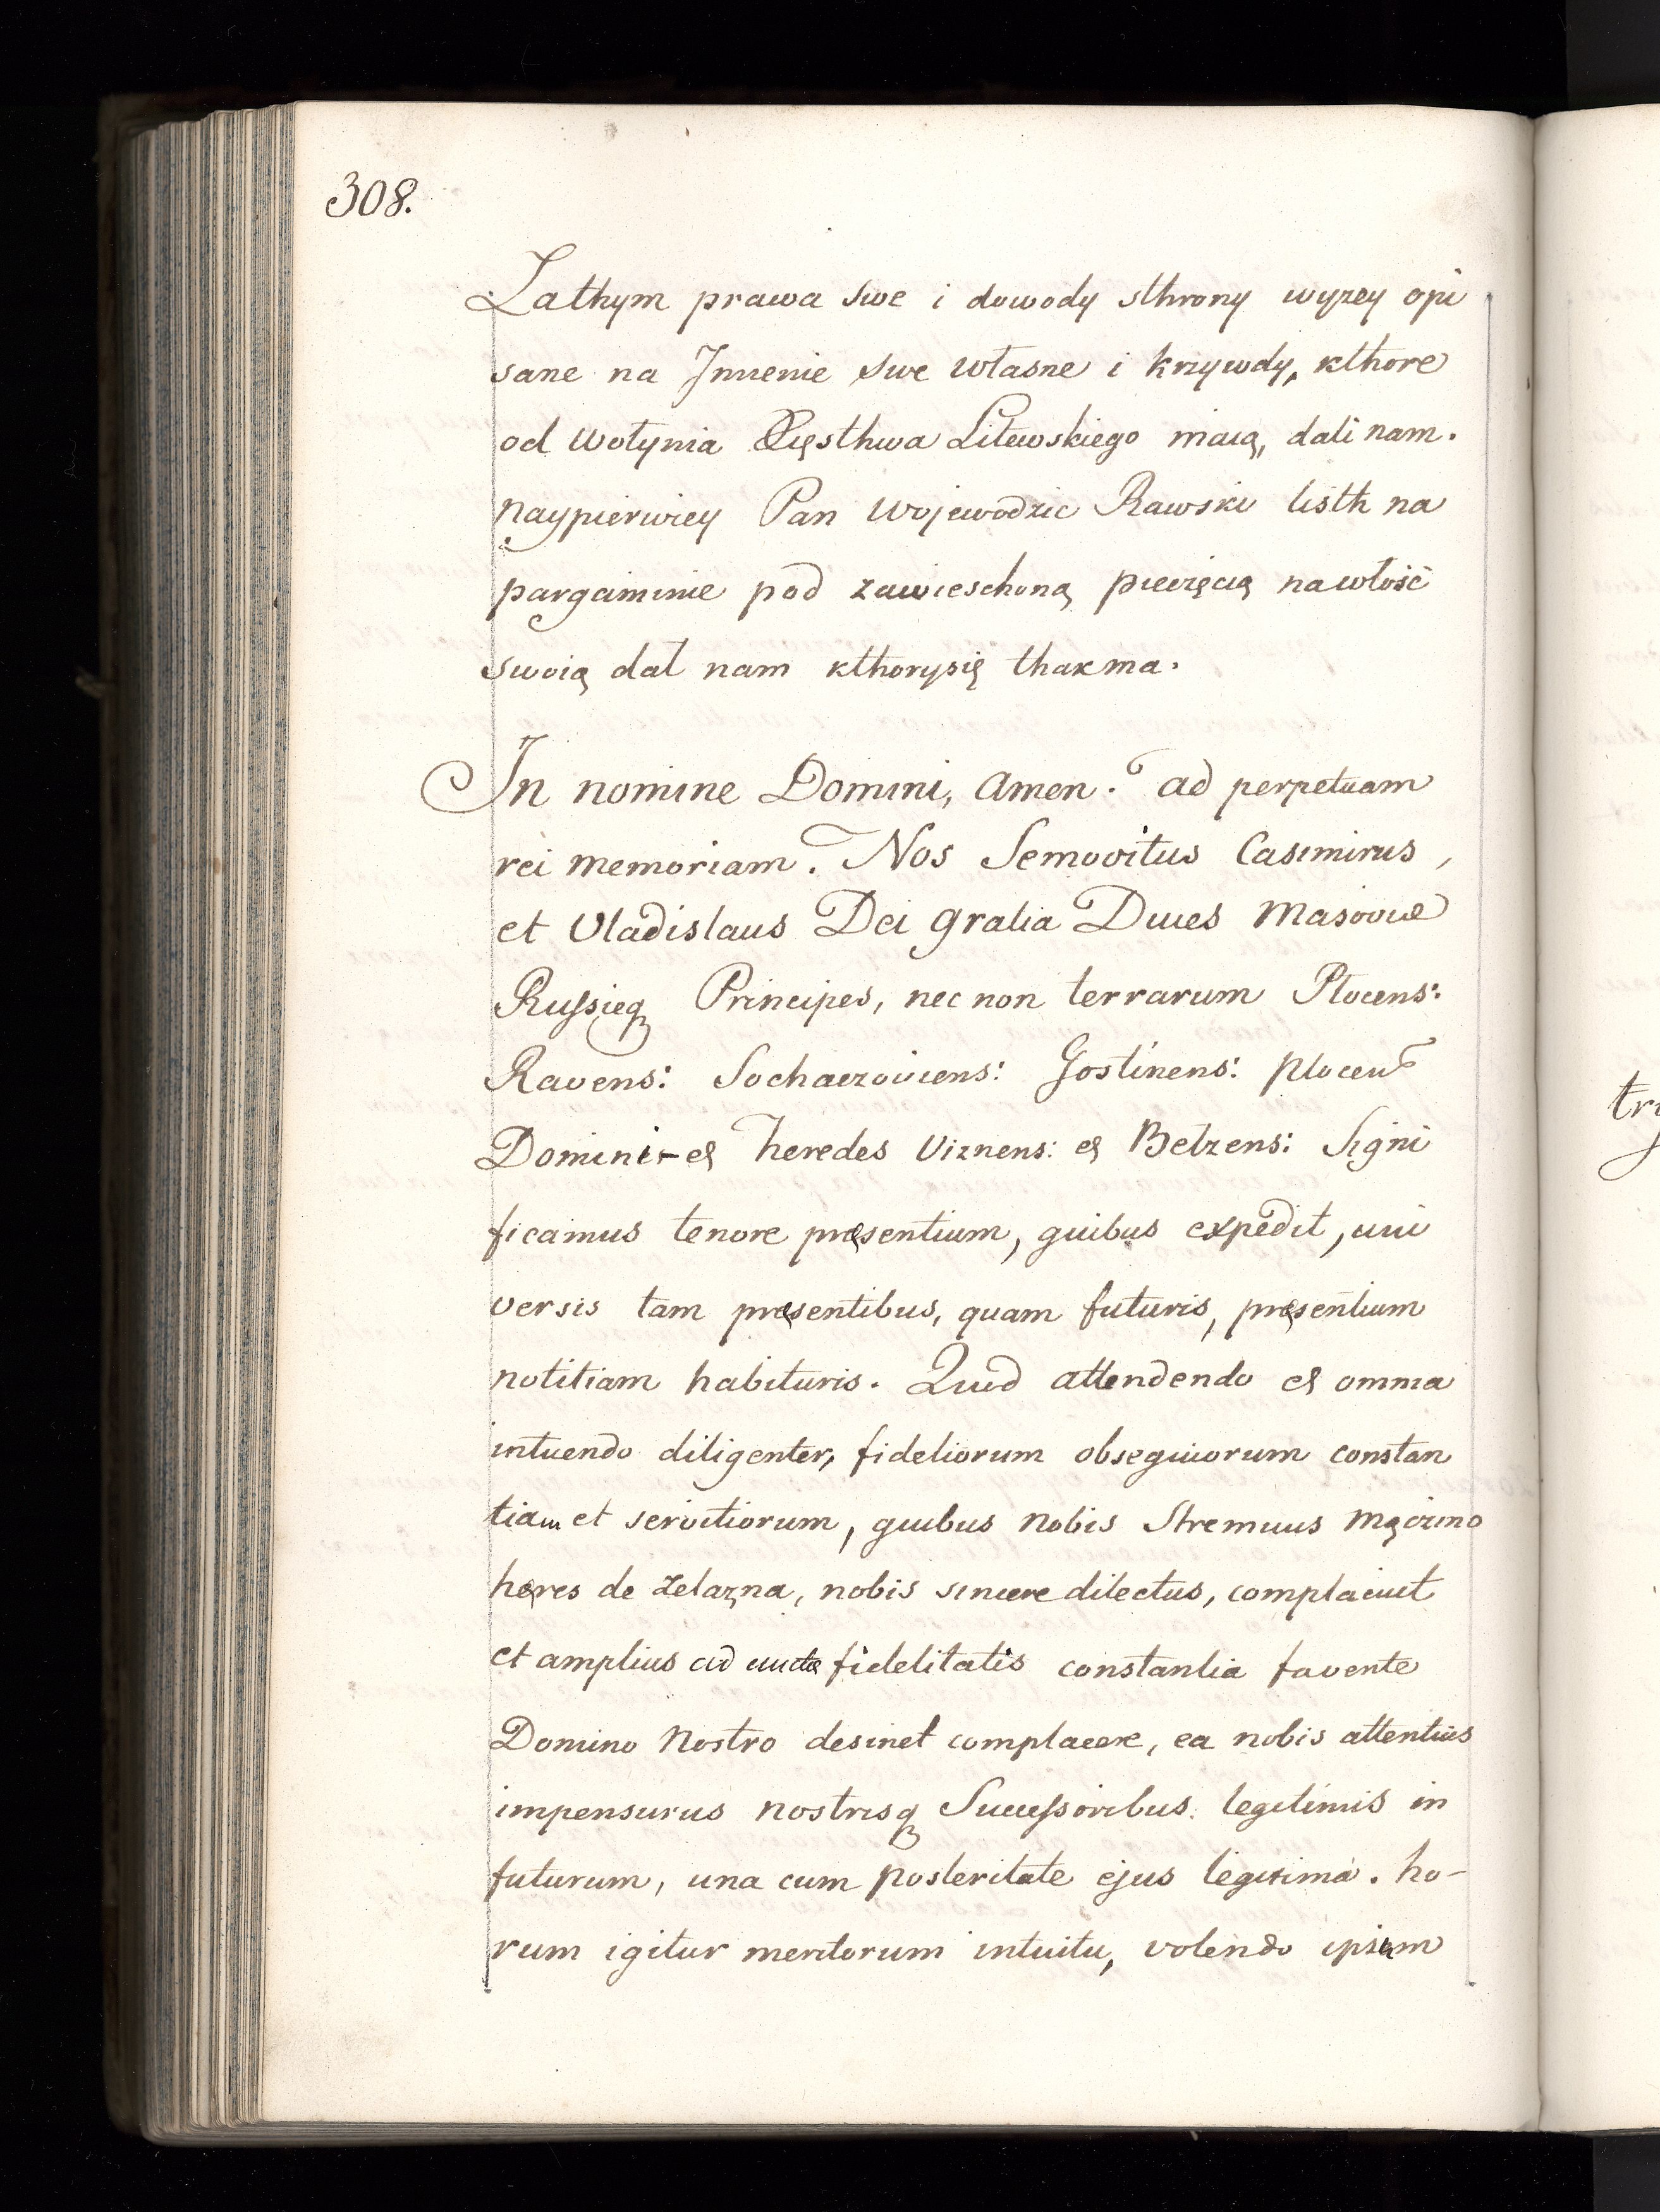 308.
Zathym prawa swe i dowody sthrony wyzey opi
sane na Jmienie swe własne i krzywdy, kthore
od Wołynia Xięsthwa Litewskiego maią, dali nam.
naypierwiey Pan Wojewodzic Rawski listh na
pargaminie pod zawieschoną pieczęcią nawłość
swoią dał nam kthorysię thak ma.
In nomine Domini, Amen. ad perpetuam
rei memoriam. Nos Semovitus Casimirus,
et Vladislaus Dei gratia Duces Masoviæ
Russieq Principes, nec non terrarum Plocens:
Ravens: Sochaczoviens: Gostinens: plocens
Domini et heredes Viznens: et Belzens: Signi
ficamus tenore pręsentium, quibus expedit, uni
versis tam pręsentibus, quam futuris, pręsentium
notitiam habituris. Quod attendendo et omnia
intuendo diligenter, fideliorum obsequiorum constan
tiam et servitiorum, quibus nobis Strenuus Męczino
hęres de Zelazna, nobis sincere dilectus, complacuit
et amplius ad aucta fidelitatis constantia favente
Domino Nostro desinet complacere, ea nobis attentius
impensurus nostrisq Successoribus legitimis in
futurum, una cum posteritate ejus legitima. ho-
rum igitur meritorum intuitu, volendo ipsum